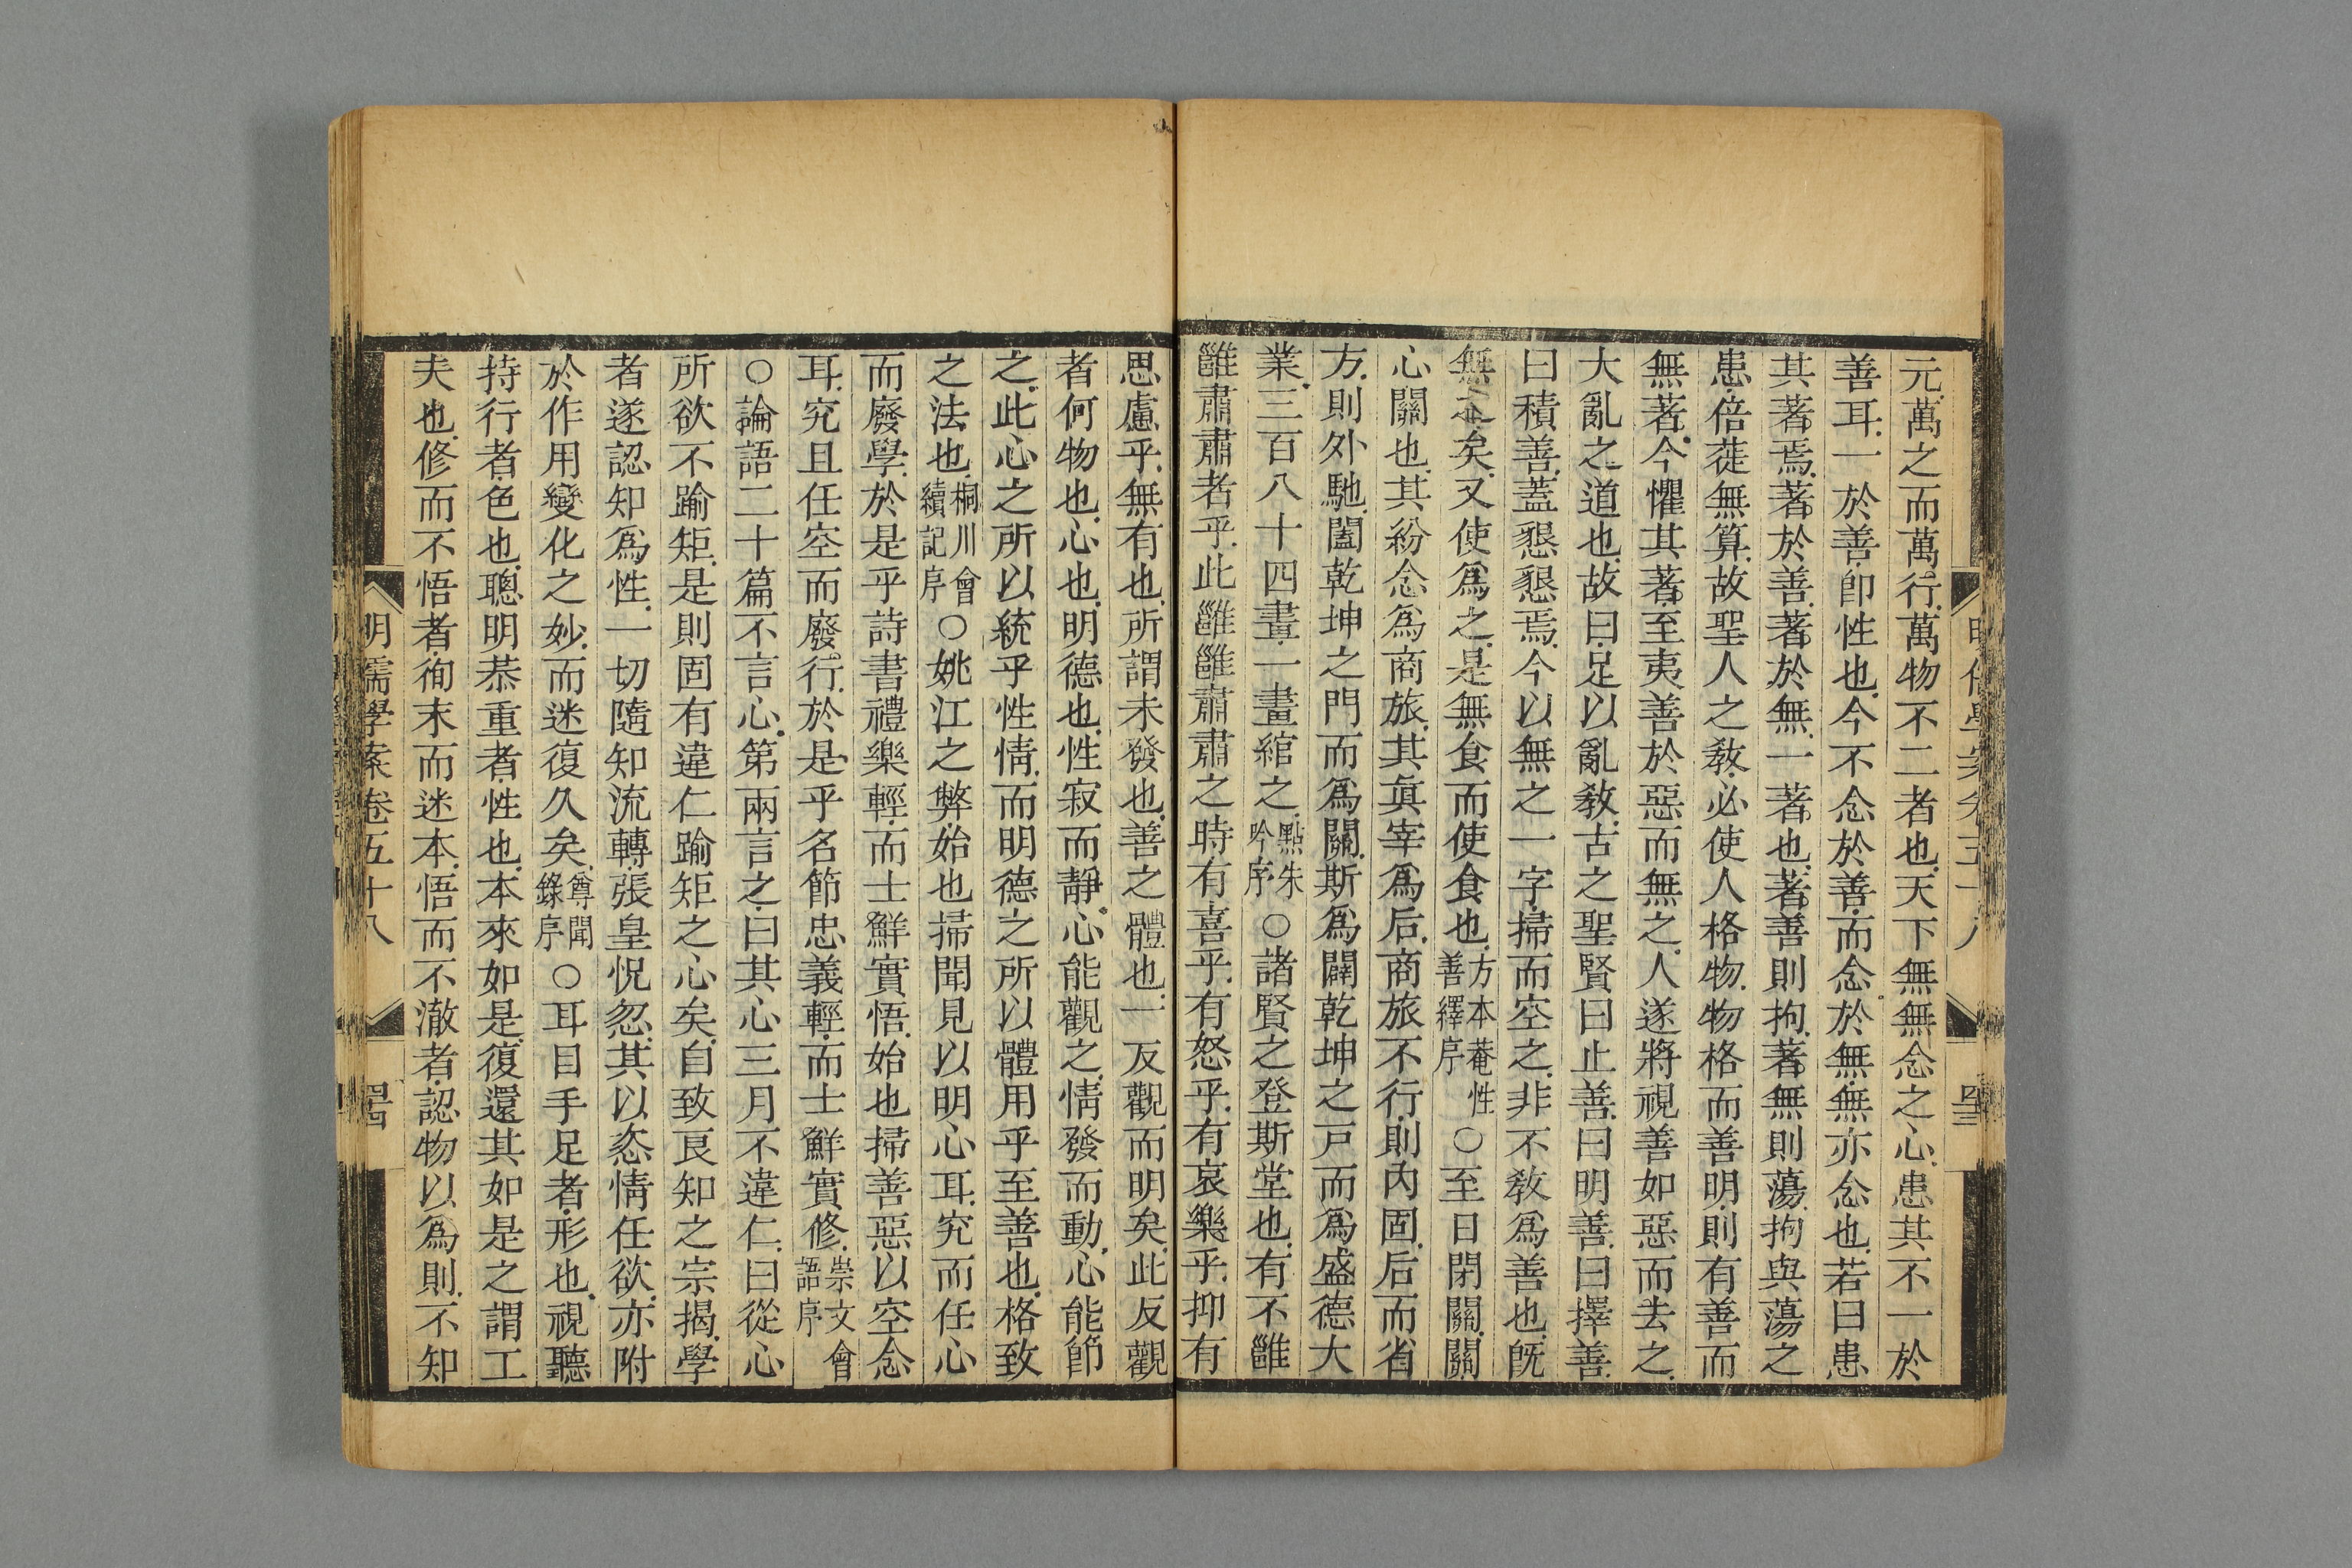 元萬之而萬行萬物不二者也天下無無念之心患其不一於
善耳一於善卽性也今不念於善而念於無無亦念也若曰患
其著焉著於善著於無一著也著善則拘著無則蕩拘與蕩之
患倍蓰無算故聖人之敎必使人格物物格而善明則有善而
無著今懼其著至夷善於惡而無之人遂將視善如惡而去之
大亂之道也故曰足以亂敎古之聖賢曰止善曰明善曰擇善
曰積善蓋懇懇焉今以無之一字掃而空之非不敎爲善也旣
無之矣又使爲之是無食而使食也方本菴性善繹序○至日閉關關
心關也其紛念爲商旅其眞宰爲后商旅不行則內固后而省
方則外馳闔乾坤之門而爲關斯爲闢乾坤之戸而爲盛德大
業三百八十四畫一畫綰之點朱吟序○諸賢之登斯堂也有不雝
雝肅肅者乎此雝雝肅肅之時有喜乎有怒乎有哀樂乎抑有
思慮乎無有也所謂未發也善之體也一反觀而明矣此反觀
者何物也心也明德也性寂而靜心能觀之情發而動心能節
之此心之所以統乎性情而明德之所以體用乎至善也格致
之法也桐川會續記序○姚江之弊始也掃聞見以明心耳究而任心
而廢學於是乎詩書禮樂輕而士鮮實悟始也掃善惡以空念
耳究且任空而廢行於是乎名節忠義輕而士鮮實修崇文會語序
○論語二十篇不言心第兩言之曰其心三月不違仁曰從心
所欲不踰矩是則固有違仁踰矩之心矣自致良知之宗揭學
者遂認知爲性一切隨知流轉張皇怳忽其以恣情任欲亦附
於作用變化之妙而迷復久矣尊聞錄序○耳目手足者形也視聽
持行者色也聰明恭重者性也本來如是復還其如是之謂工
夫也修而不悟者徇末而迷本悟而不澈者認物以爲則不知
明儒學案卷五十八